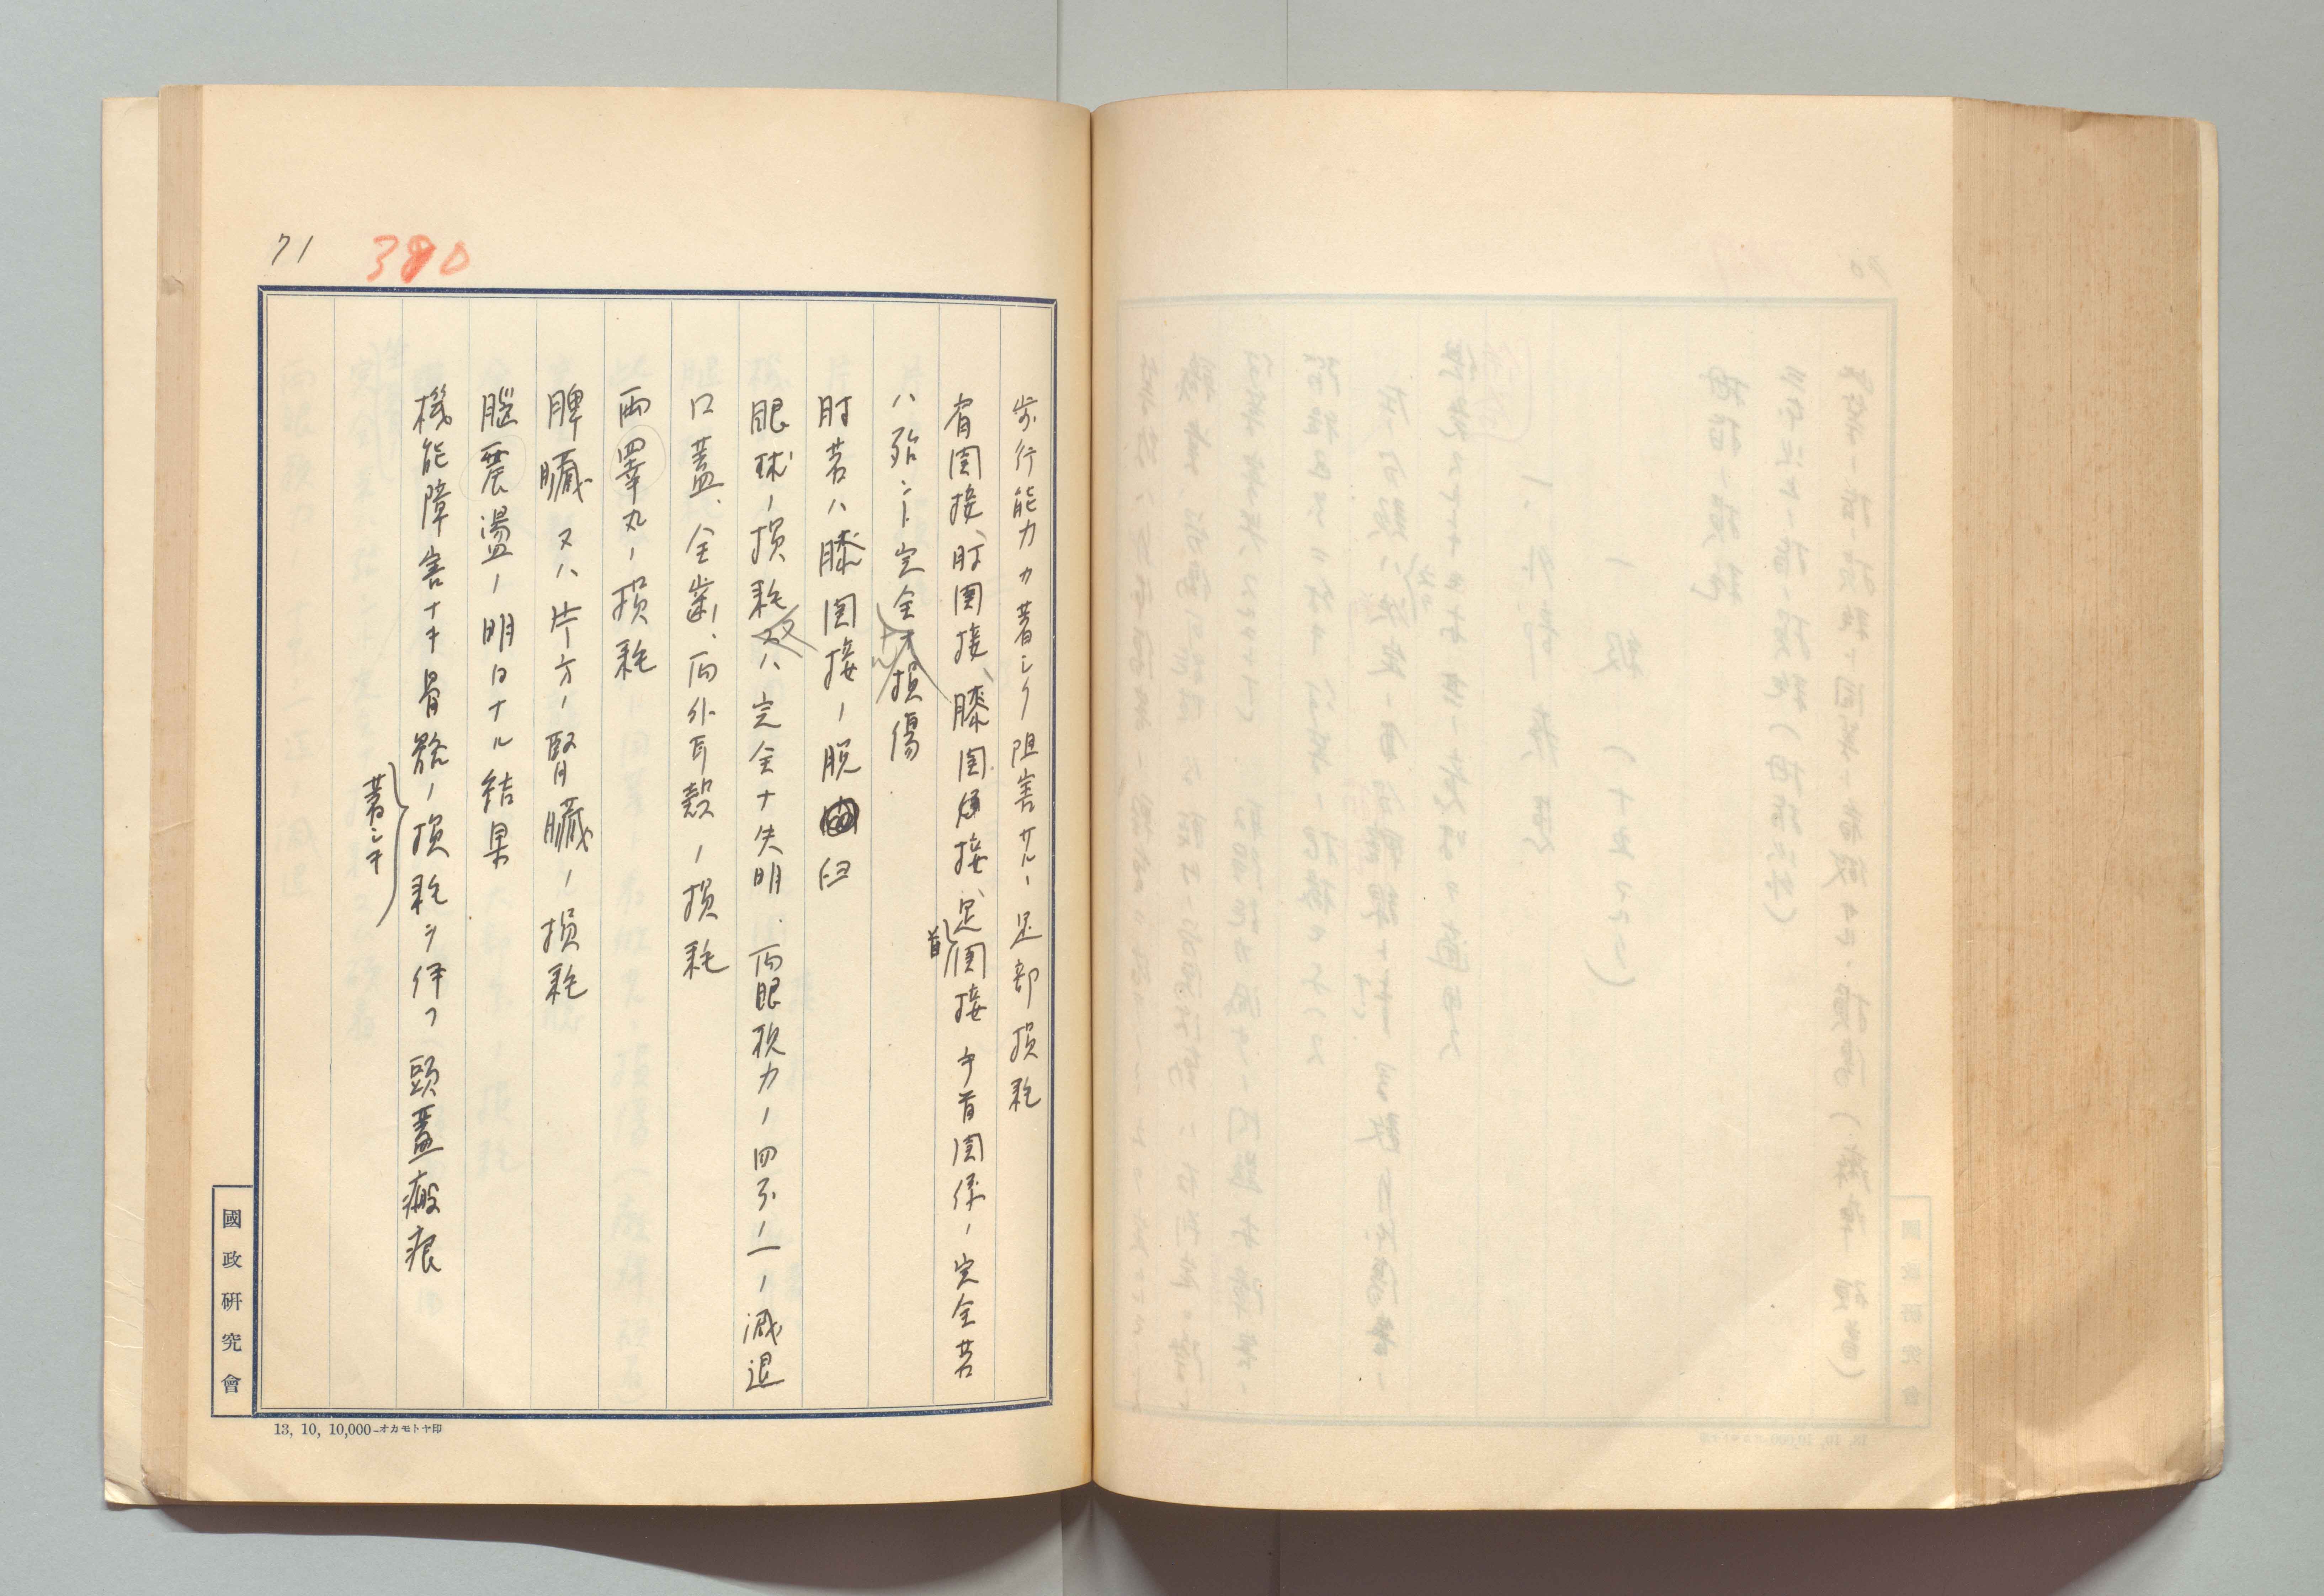 71
390
歩行能力カ著シク阻害サルヽ足部損耗
肩関接、肘関接、膝関接、足首関接 手首関係ノ完全若
ハ殆ント完全ナル損傷
肘若ハ膝関接ノ脱臼
眼球ノ損耗又ハ完全ナ失明、両眼視力ノ四分ノ一ノ減退
口蓋、全歯、両外耳殻ノ損耗
両睾丸ノ損耗
脾臓又ハ片方ノ腎臓ノ損耗
脳震盪ノ明白ナル結果
機能障害ナキ骨骼ノ著シキ損耗ヲ伴フ頭蓋瘢痕
國政研究會
13, 10, 10,000—オカモトヤ印